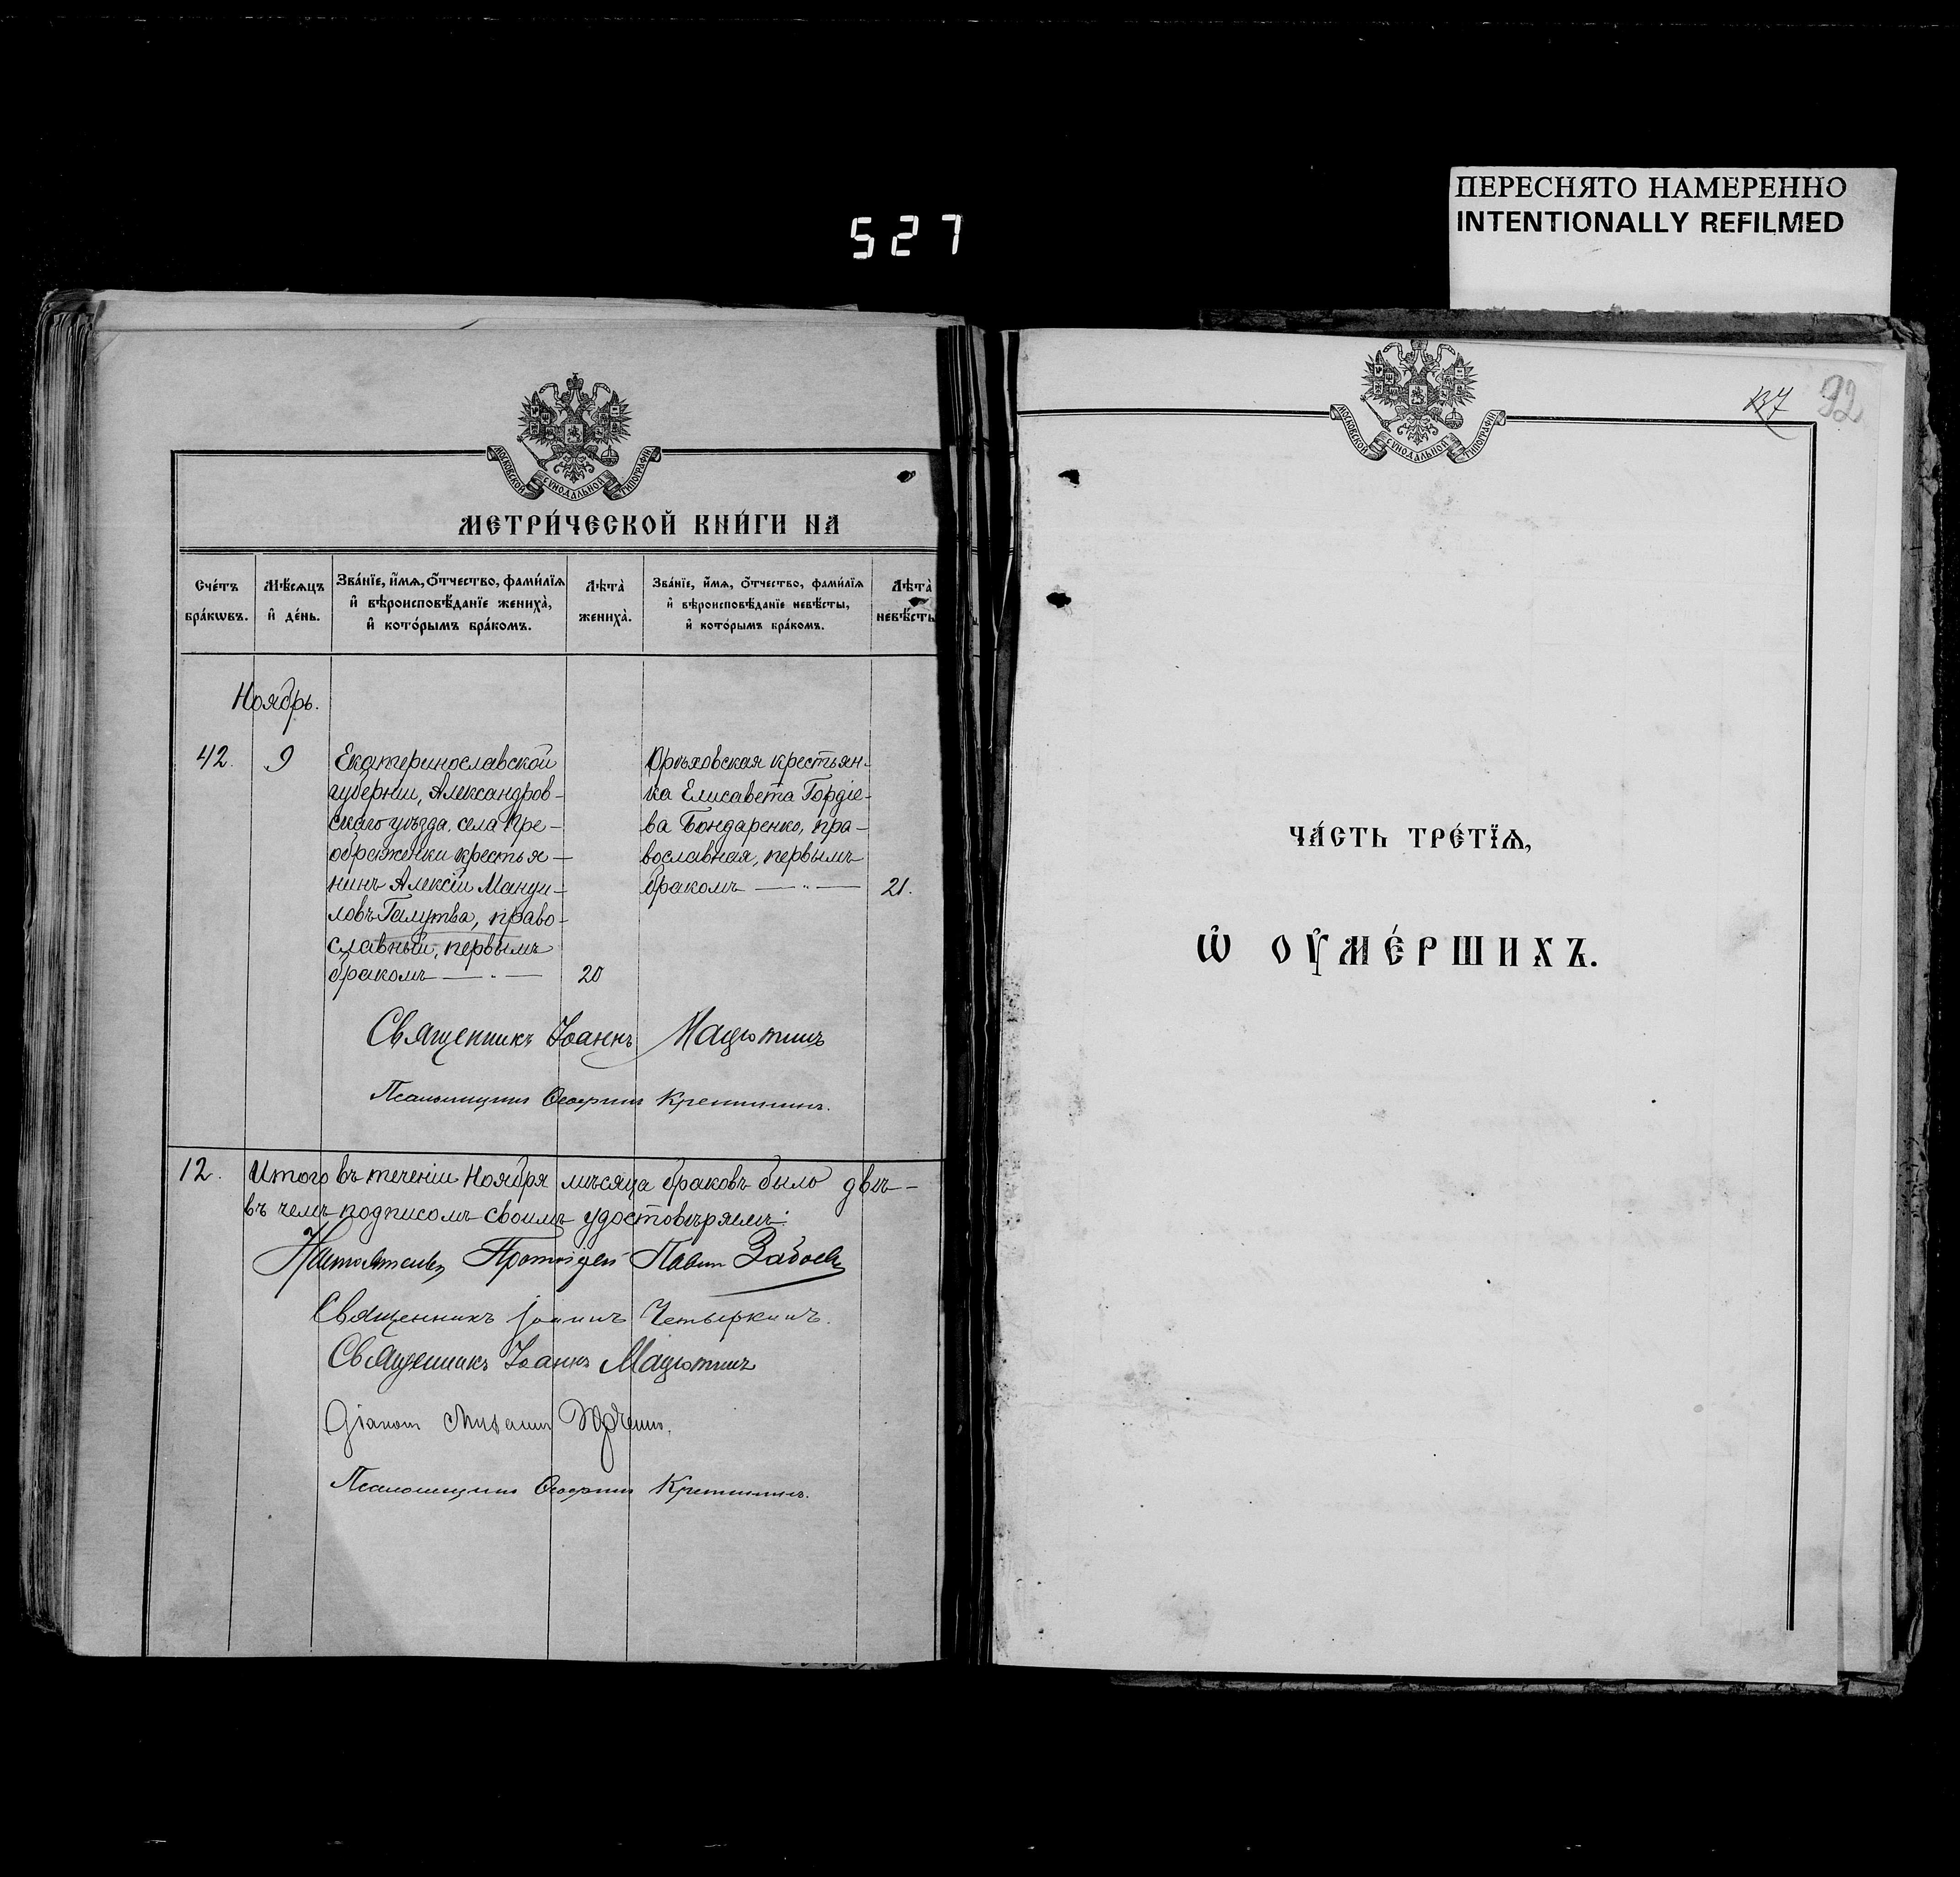 ПЕРЕСНЯТО НАМЕРЕННО
INTENTIONALLY REFILMED
527
МОСКОВСКОЙ СУНОДАЛЬНОЙ ТИПОГРАФІИ
МЕТРИ́ЧЕСКОЙ КНИ́ГИ НА
Сче́тъ бра́кωвъ.
Мѣ́сѧцъ и҆ де́нь.
Зва́нїе, и҆́мѧ, ѻ҆́тчество, фами́лїѧ и҆ вѣроисповѣ́данїе жениха̀, и҆ кото́рымъ бра́комъ.
Лѣта̀ жениха̀.
Зва́нїе, и҆́мѧ, ѻ҆́тчество, фами́лїѧ и҆ вѣроисповѣ́данїе невѣ́сты, и҆ кото́рымъ бра́комъ.
Лѣта̀ невѣ́сты
Ноябрь.
42.
9
Екатеринославской
губерніи, Александров-
скаго уѣзда, села Пре-
ображенки крестья-
нинъ Алексій Мануи-
ловъ Галутва, право-
славный, первымъ
бракомъ — „ —
20
Орѣховская крестьян-
ка Елисавета Гордіе-
ва Бондаренко, пра-
вославная, первымъ
бракомъ — „ —
21.
Священникъ Іоаннъ Мацютинъ
Псаломщикъ
12.
Итого въ теченіи Ноября мѣсяца браковъ было двѣ-
въ чемъ подписомъ своимъ удостовѣряемъ:
Настоятель, Протоіерей Павелъ
Священникъ Іоаннъ Четыркинъ.
Священникъ Іоаннъ Мацютинъ
Діаконъ
Псаломщикъ
МОСКОВСКОЙ СУНОДАЛЬНОЙ ТИПОГРАФІИ
92
ЧА́СТЬ ТРЕ́ТЇѦ,
Ѡ҆ ОУ҆МЕ́РШИХЪ.